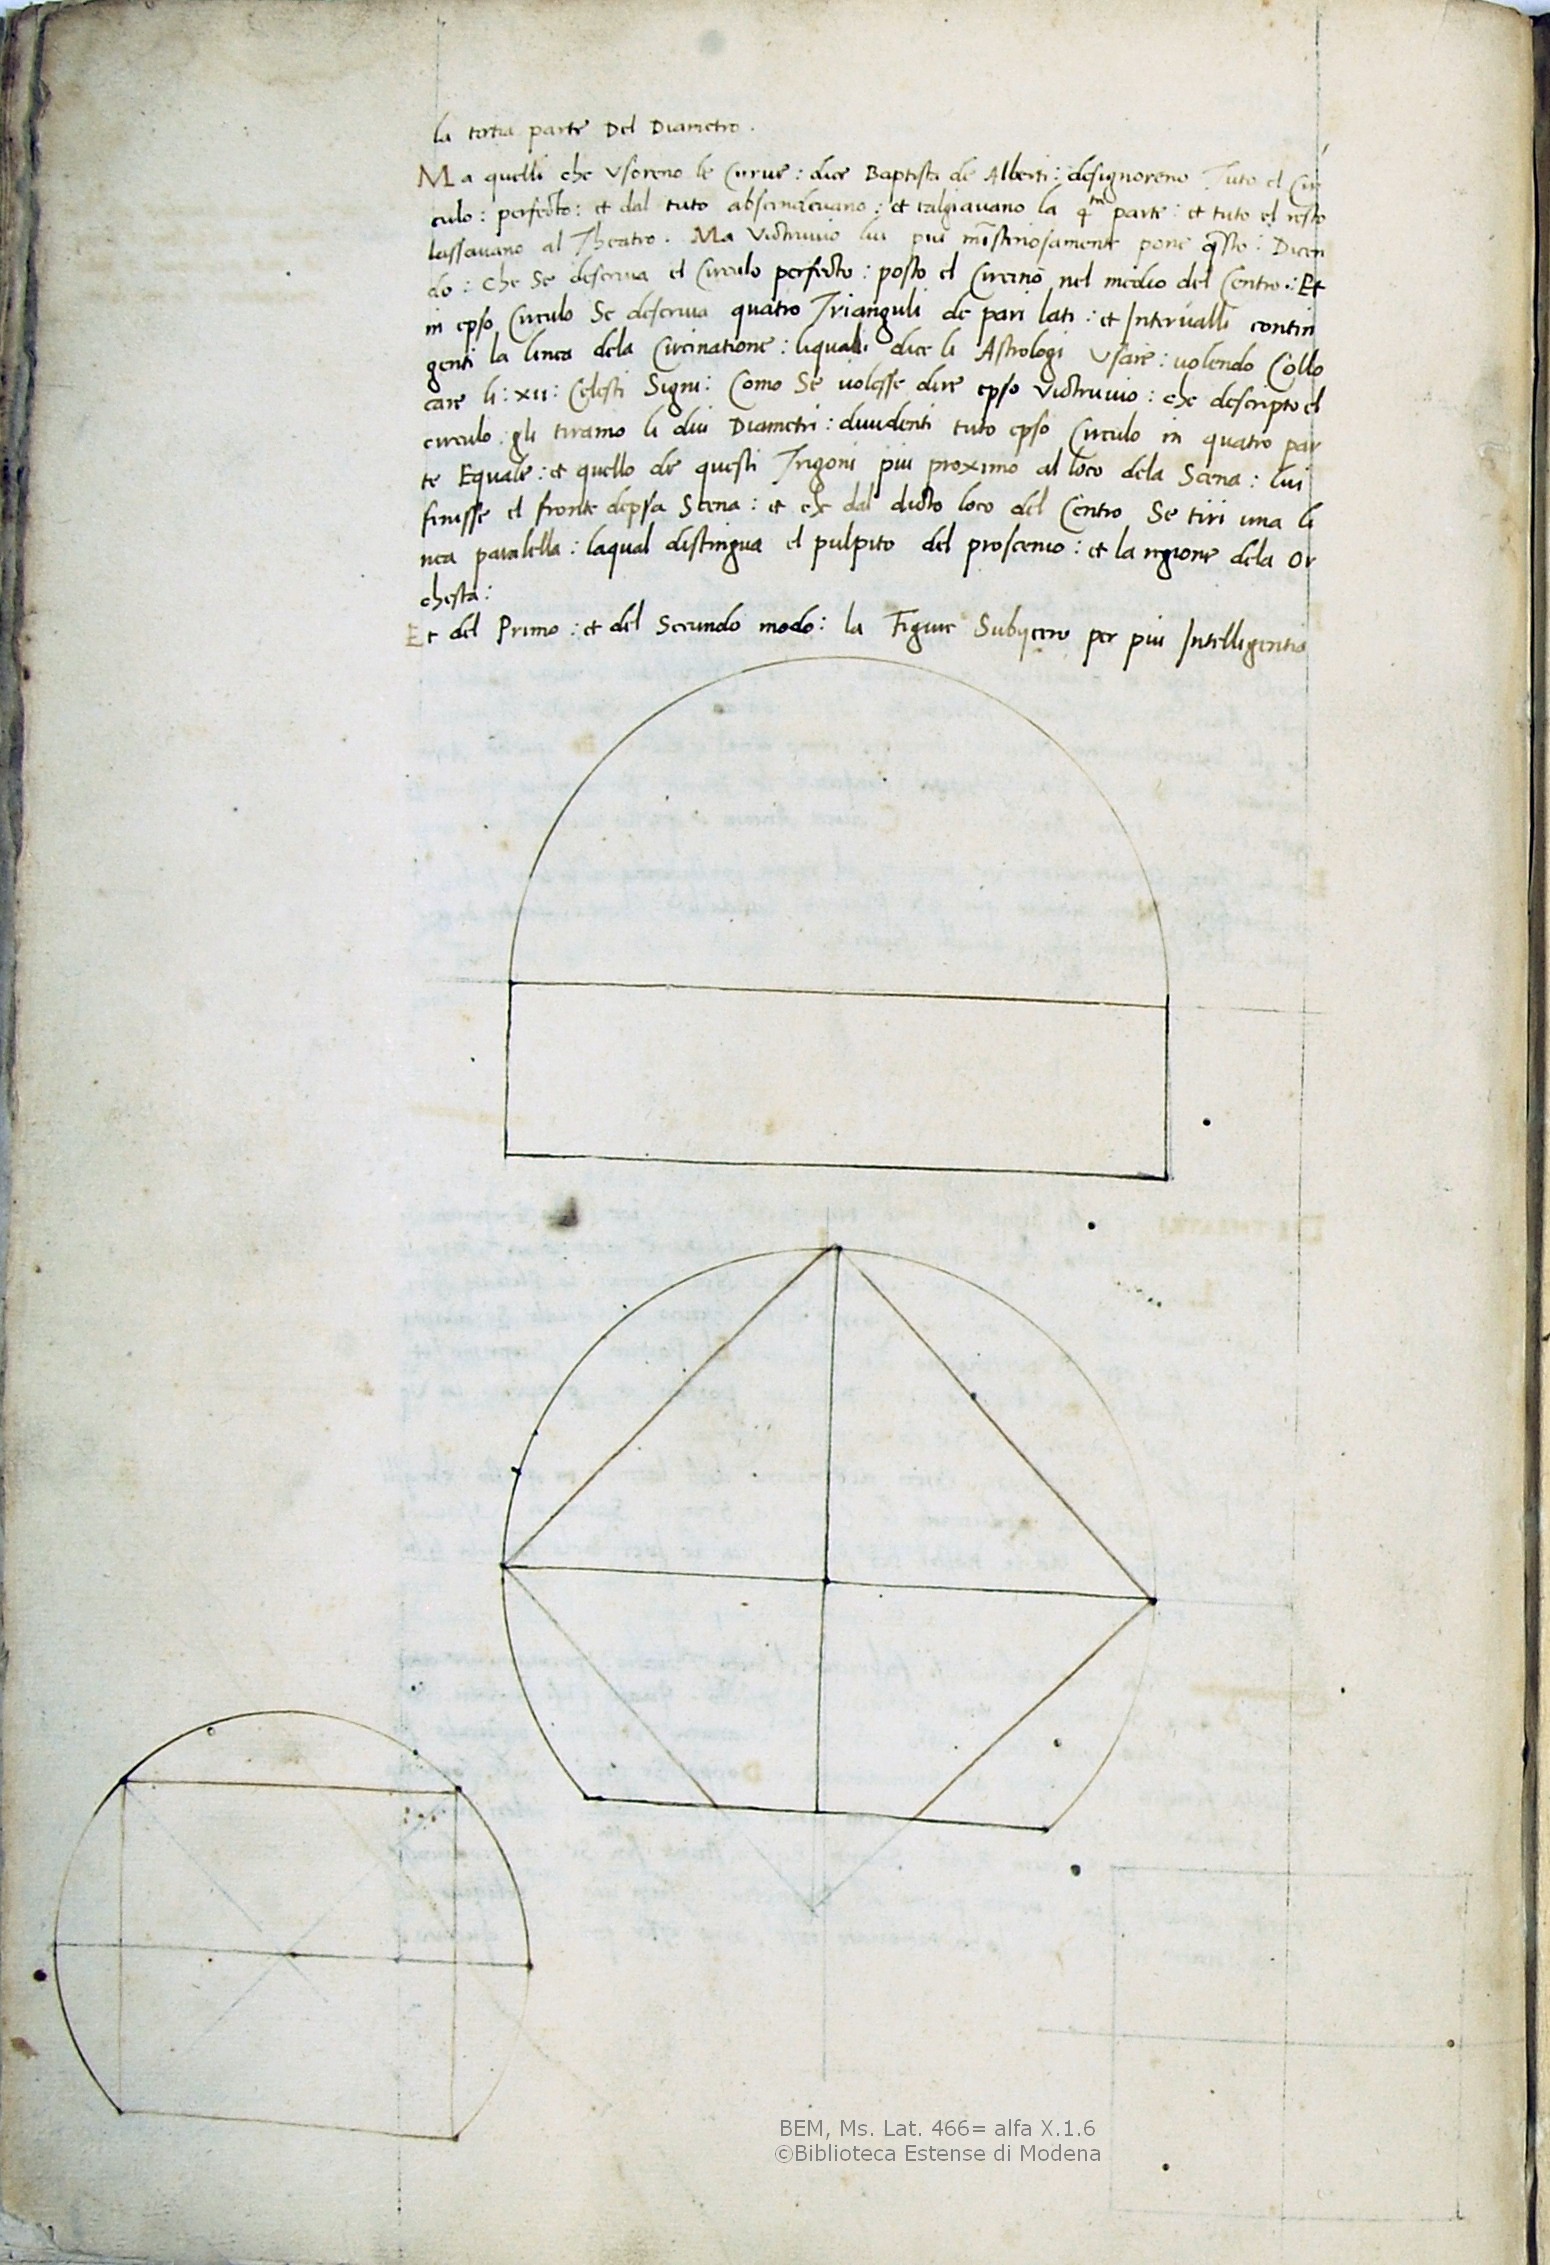 la tertia parte Del Diametro.
Ma quelli che Usoreno le Curue: dice Baptista de Alberti: designoreno Tuto el Cir
culo: perfecto: et dal tuto abscindeuano: et talgiauano la q̃ta parte: et tuto el resto
lassauano al Theatro. Ma Victruuio lui piu misteriosamente pone q̃sto: Dicen
do: che Se descriua el Circulo perfecto: posto el Circino nel medio del Centro.: Et
in epso Circulo Se descriua quatro Trianguli de pari lati: et Interualli contin
genti la linea dela Circinatione: liquali dice li Astrologi Usare: uolendo Collo
care li: xii: Celesti Signi: Como Se uolesse dire epso Victruuio: che descripto el
circulo gli tiramo li dui Diametri: diuidenti tuto epso Circulo in quatro par
te Equale: et quello de questi Trigoni piu proximo al loco dela Scena: lui
finisse el fronte depsa Scena: et che dal dicto loco del Centro Se tiri una li
nea paralella: laqual distingua el pulpito del proscenio: et la regione dela Or
chesta:
Et del Primo: et del Secundo modo: la Figure Subijcero per piu Intelligentia
BEM, Ms. Lat. 466= alfa X.1.6
©Biblioteca Estense di Modena